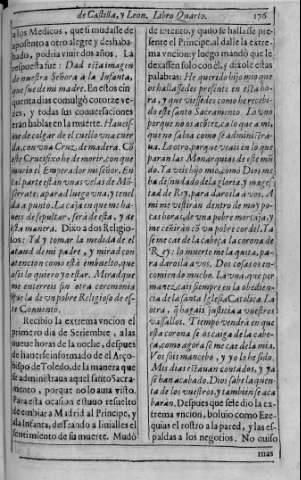 de Castilla, y Leon. Libro Quarto. 176
a los Medicos, que si mudasse de
aposento a otro alegre, y deshaba-
hado, podria viuir dos años. La
respuesta fue: Dad esta imagen
de nuestra Señora a la Infanta,
que fue de mi madre. En estos cin
quenta dias comulgò catorze ve-
zes, y todas sus conuersaciones
eran hablar en la muerte. Haueis-
me de colgar de el cuello vna cuer
da, con vna Cruz, de madera. Cõ
este Crucifixo he de morir, con que
murio el Emperador mi señor. En
tal parte estàn vnas velas de Mõ-
serrate: aparad luego vna, y tened
la a punto. La caja en que me ha-
ueis de sepultar, serà de esta, y de
esta manera. Dixo a dos Religio-
sos: Id y tomar la medida de el
ataud de mi padre, y mirad con
atencion como està embuelto, que
assi lo quiero yo estar. Mirad que
me enterreis sin otra ceremonia
que la de vn pobre Religioso de es-
te Conuento.
Recibio la extrema vncion el
primero dia de Setiembre, a las
nueue horas de la noche, despues
de hauerse informado de el Arço-
bispo de Toledo, de la manera que
se administraua aquel santo Sacra-
mento, porque no lo auia visto.
Para esta ocasion estaua resuelto
de embiar a Madrid al Principe, y
a la Infanta, desseando aliuialles el
sentimiento de su muerte. Mudò
de intento, y quiso se hallasse pre-
sente el Principe, al dalle la extre-
ma vncion; y luego mandò que le
dexassen solo con èl, y dixole estas
palabras: He querido hijo mio que
os hallassedes presente en esta ho-
ra, y que viessedes como he recebi-
do este santo Sacramento. Lo vno
porque no os acõtezca lo que a mi,
que no sabia como se administra-
ua. Lo otro, porque veais en lo que
paran las Monarquias de este mũ-
do. Ya veis hijo mio, como Dios me
ha desnudado de la gloria, y mages
tad de Rey, para darosla a vos. A
mi me vestiràn dentro de muy po-
cas horas, de vna pobre mortaja, y
me ceñiràn cõ vn pobre cordel. Ya
se me cae de la cabeça la corona de
Rey: lo muerte me la quita, pa-
ra darosla a vos. Dos cosas os en-
comiendo mucho. La vna que per
manezcais siempre en la obedien-
cia de la santa Iglesia Catolica. La
otra, q̃ hagais justicia a vuestros
vassallos. Tiempo vendrà en que
esta corona se os caiga de la cabe-
ça, como agora se me cae de la mia.
Vos sois mancebo, y yo lo he sido.
Mis dias estauan contados, y ya
se han acabado. Dios sabe la quen-
ta de los vuestros, y tambien se aca
baràn. Despues que se le dio la ex-
trema vncion, boluio como Eze-
quias el rostro a la pared, y las es-
paldas a los negocios. No quiso
mas